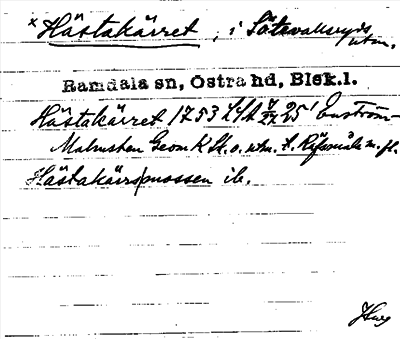 × Hästakärret, i Sötevallsryds utm.
Ramdala sn, Östra hd, Blek.l.
Hästakärret 1753 LSA 25' Enström-
Malmsten Geom K Sk. o. utm. t.
Hästakärrsmossen ib.